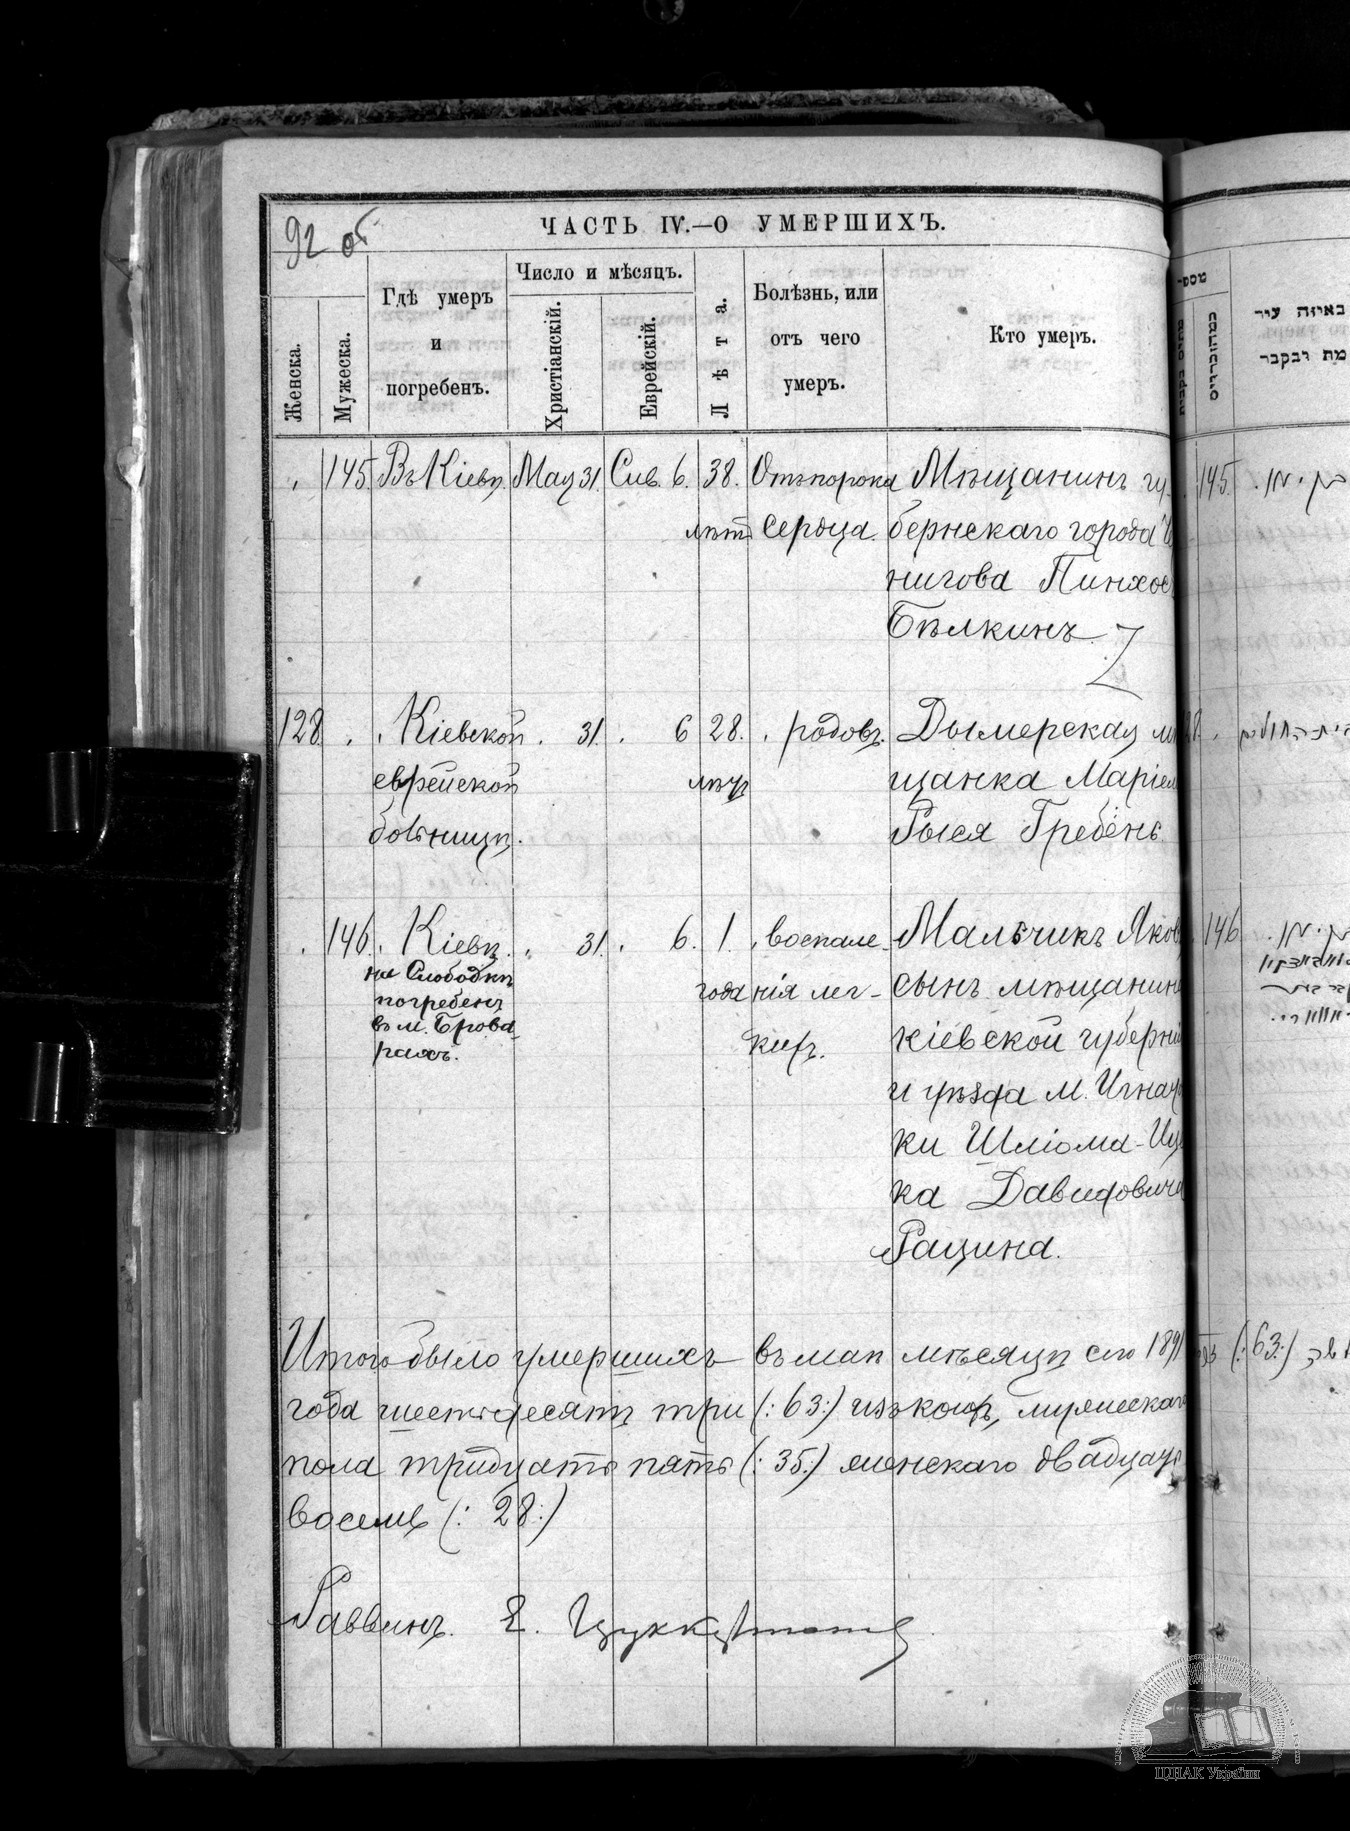 92 об
ЧАСТЬ IV.—О УМЕРШИХЪ.
Женска.
Мужеска.
Гдѣ умеръ
и
погребенъ.
Число и мѣсяцъ.
Христіанскій.
Еврейскій.
Лѣта.
Болѣзнь, или
отъ чего
умеръ.
Кто умеръ.
מספר
באיזה עיר
מת ונקבר
145. Въ Кіевѣ. Мая 31. Сив. 6. 38. Отъ порока Мѣщанинъ гу- 145.
лѣтъ сердца. бернскаго города Ч
нигова Пинхос
Бѣлкинъ
128 Кіевской 31. 6 28. родовъ. Дымерская мѣ
еврейской лѣтъ щанка Маріем
больницѣ. Рыся Гребень.
146. Кіевѣ. 31. 6. 1. воспале- Мальчикъ Яков 146
на Слободкѣ года нія лег- сынъ мѣщанина
погребенъ
въ м. Брова- кихъ. Кіевской губерніи
рахъ.
и уѣзда м. Игнат
ки Шліома-Иц
ка Давидовича
Рацина.
Итого было умершихъ въ маѣ мѣсяцѣ сего 1891 (:63:)
года шестьдесятъ три (:63:) изъ коихъ, мужескаго
пола тридцать пять (:35:) женскаго двадцать
восемь (:28:)
Раввинъ. Е. Цуккерманъ
ЦДІАК України